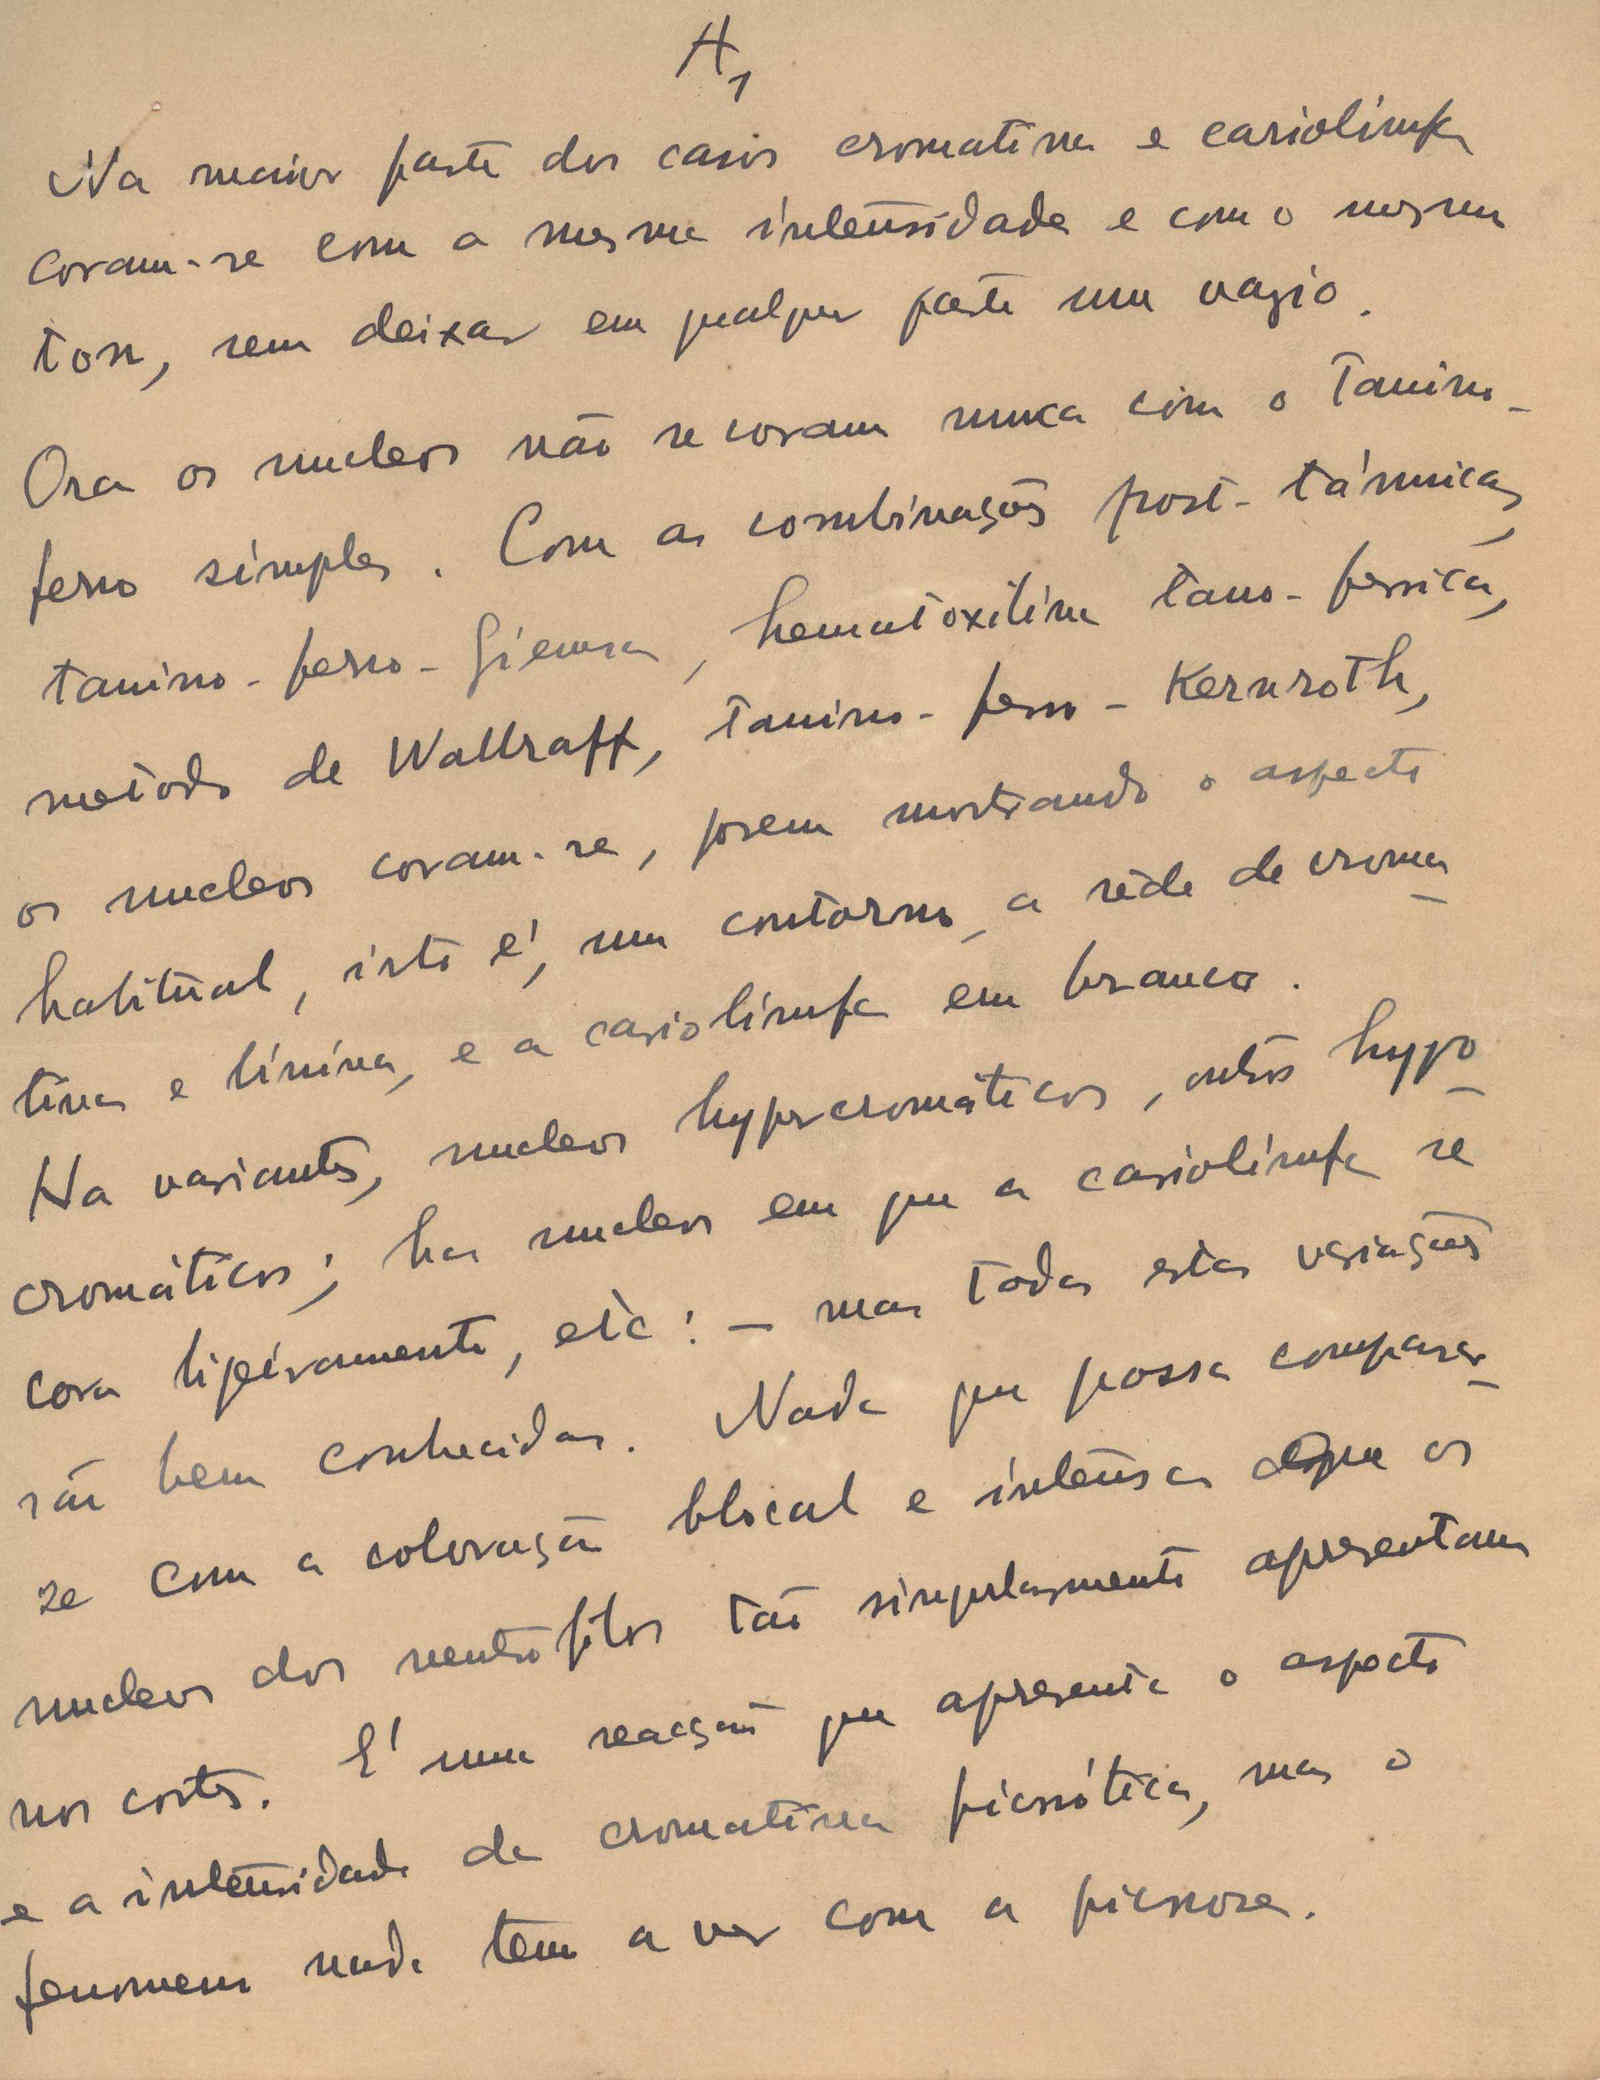 A₁
Na maior parte dos casos cromatina e cariolinfa
coram-se com a mesma intensidade e com o mesmo
tom, sem deixar em qualquer parte um vazio.
Ora os nucleos não se coram nunca com o Tanino-
ferro simples. Com as combinações post-tánnicas,
tanino-ferro-Giemsa, hematoxilina tano-ferrica,
metodo de Wallraff, tanino-ferro-Kernroth,
os nucleos coram-se, porem mostrando o aspecto
habitual, isto é, um contorno, a rêde de croma-
tina e linina, e a cariolinfa em branco.
Ha variantes, nucleos hypercromáticos, outros hypo-
cromáticos; ha nucleos em que a cariolinfa se
cora ligeiramente, etc: - mas todas estas variações
são bem conhecidas. Nada que possa comparar-
se com a coloração blocal e intensa que os
nucleos dos neutrófilos tão singularmente apresentam
nos cortes. É uma reacção que apresenta o aspecto
e a intensidade da cromatina picnótica, mas o
fenomeno nada tem a ver com a picnose.